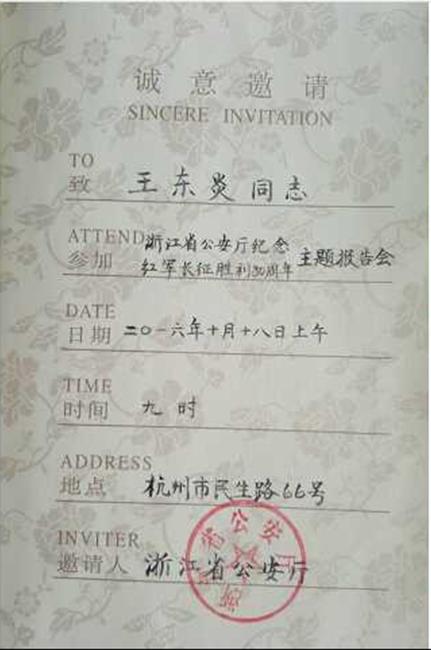 诚意邀请
SINCERE INVITATION
TO
致 王东炎同志
ATTEND 浙江省公安厅纪念
参加 红军长征胜利80周年 主题报告会
DATE
日期 二〇一六年十月十八日上午
TIME
时间 九时
ADDRESS
地点 杭州市民生路66号
INVITER
邀请人 浙江省公安厅
浙江省公安厅